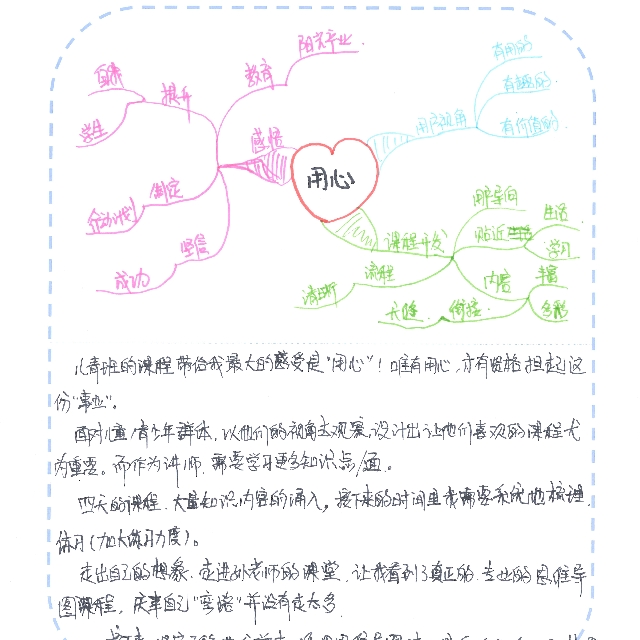 阳光产业
教育
提升
自我
学生
感悟
制定
行动计划
坚信
成功
用心
用户视角
有用的
有趣的
有价值的
课程开发
用即导向
贴近生活
生活
学习
内容
丰富
多彩
流程
清晰
无缝
衔接
儿青班的课程带给我最大的感受是"用心"！唯有用心,亦有资格担起这
份"事业"。
面对儿童/青少年群体,以他们的视角去观察,设计出让他们喜欢的课程尤
为重要。而作为讲师,需要学习更多知识点/面。
四天的课程,大量知识内容的涌入,接下来的时间里我需要系统地梳理,
练习(加大练习力度)。
走出自己的想象,走进孙老师的课堂,让我看到了真正的、专业的思维导
图课程,庆幸自己"弯路"并没有走太多.